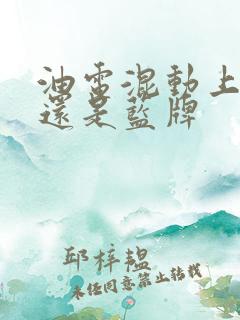 油電混動上
還是藍牌
邱梓韞
未经同意禁止转载